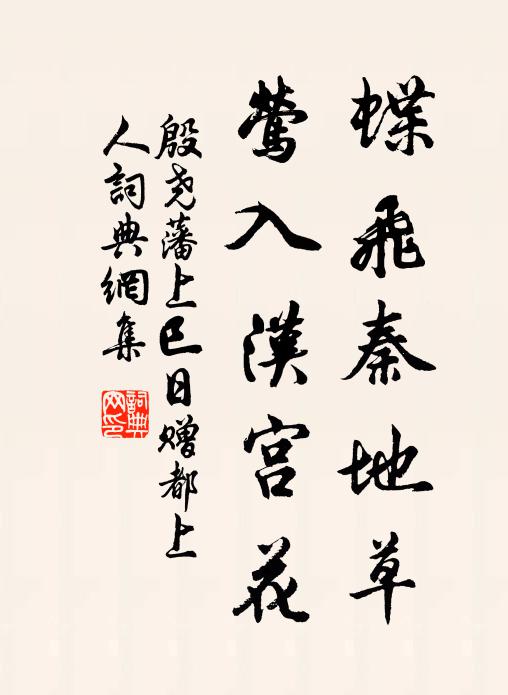 蝶飛秦地草
鶯入漢宮花
殷尧藩上巳日赠都上
人詞典網集
詞典网印